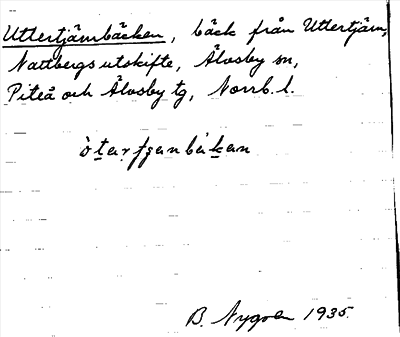 Uttertjärnbäcken, bäck från Uttertjärn,
Nattbergs utskifte, Älvsby sn,
Piteå och Älvsby tg, Norrb. l.
B. Nygren 1935.